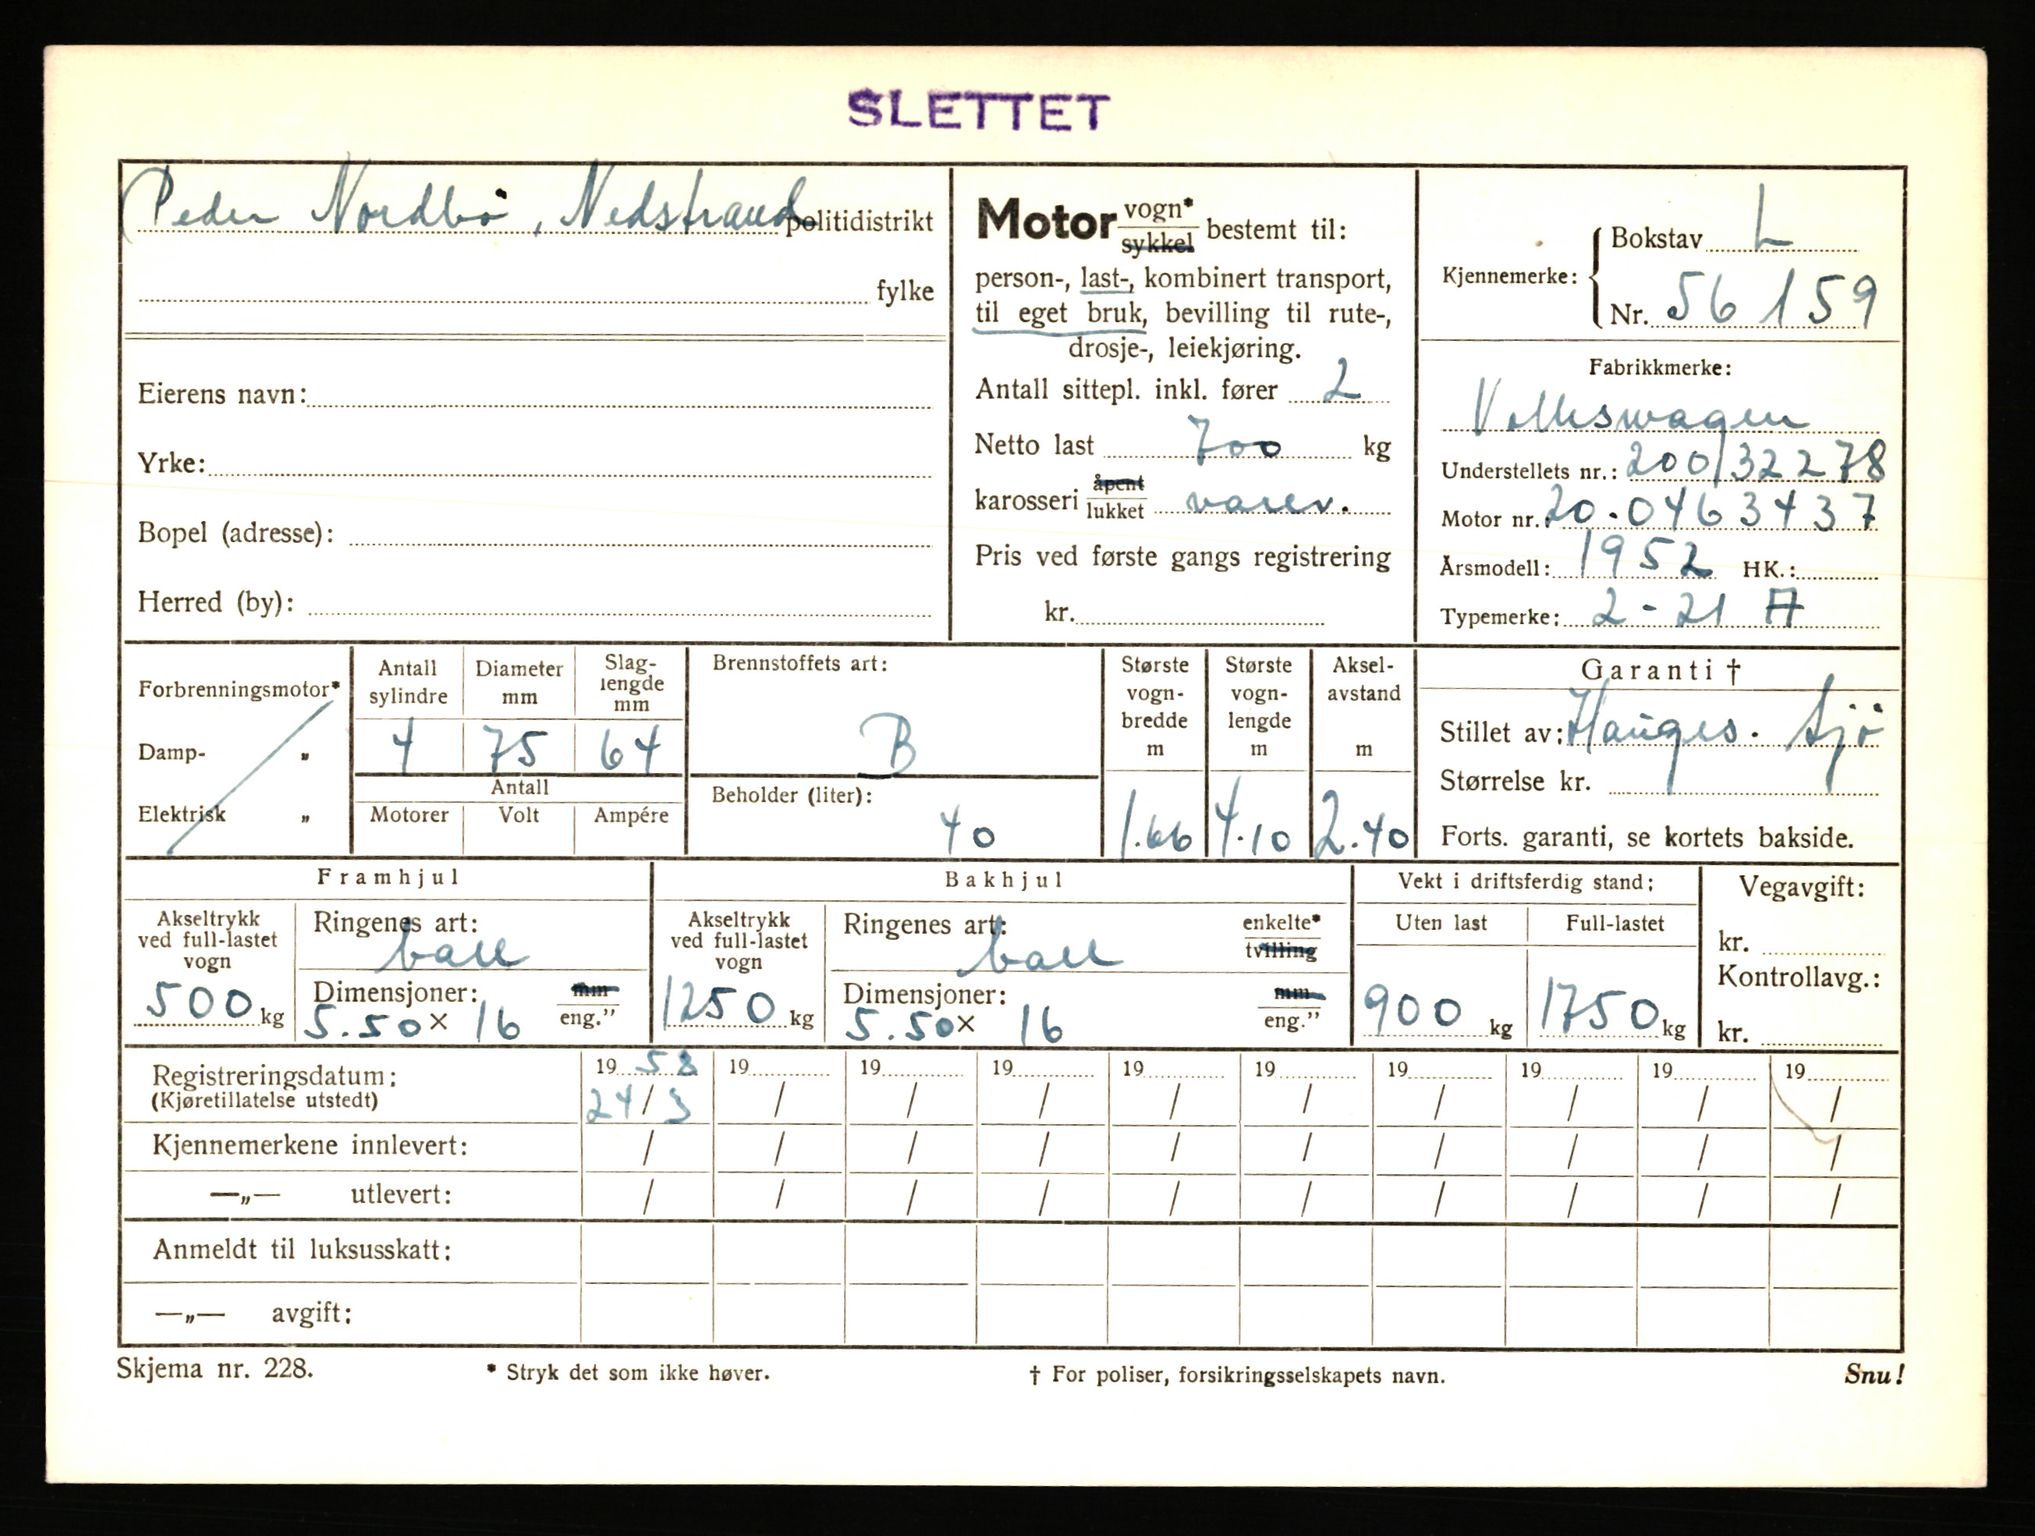 SLETTET
Peder Nordbö, Nedstrand politidistrikt
fylke
Eierens navn:
Yrke:
Bopel (adresse):
Herred (by):
Motor vogn* sykkel bestemt til:
person-, last-, kombinert transport,
til eget bruk, bevilling til rute-,
drosje-, leiekjøring.
Antall sittepl. inkl. fører 2
Netto last 700 kg
karosseri åpent lukket varev.
Pris ved første gangs registrering
kr.
Kjennemerke: Bokstav L
Nr. 56159
Fabrikkmerke:
Volkswagen
Understellets nr.: 200132278
Motor nr.: 20.0463437
Årsmodell: 1952 HK.:
Typemerke: 2-21 A
Forbrenningsmotor*
Damp- „
Elektrisk „
Antall sylindre Diameter mm Slaglengde mm
4 75 64
Antall
Motorer Volt Ampére
Brennstoffets art:
B
Beholder (liter):
40
Største vogn-bredde m
1.66
Største vogn-lengde m
4.10
Aksel-avstand m
2.40
Garanti †
Stillet av: Hauges. Sjö
Størrelse kr.
Forts. garanti, se kortets bakside.
Framhjul
Akseltrykk ved full-lastet vogn
500 kg
Ringenes art:
ball
Dimensjoner: mm
5.50 x 16 eng.”
Bakhjul
Akseltrykk ved full-lastet vogn
1250 kg
Ringenes art: enkelte*
ball tvilling
Dimensjoner: mm
5.50 x 16 eng.”
Vekt i driftsferdig stand:
Uten last Full-lastet
900 kg 1750 kg
Vegavgift:
kr.
Kontrollavg.:
kr.
Registreringsdatum: 1958 19 19 19 19 19 19 19 19 19
(Kjøretillatelse utstedt) 24/3 / / / / / / / / /
Kjennemerkene innlevert: / / / / / / / / / /
—„— utlevert: / / / / / / / / / /
Anmeldt til luksusskatt:
—„— avgift:
Skjema nr. 228. * Stryk det som ikke høver. † For poliser, forsikringsselskapets navn. Snu!